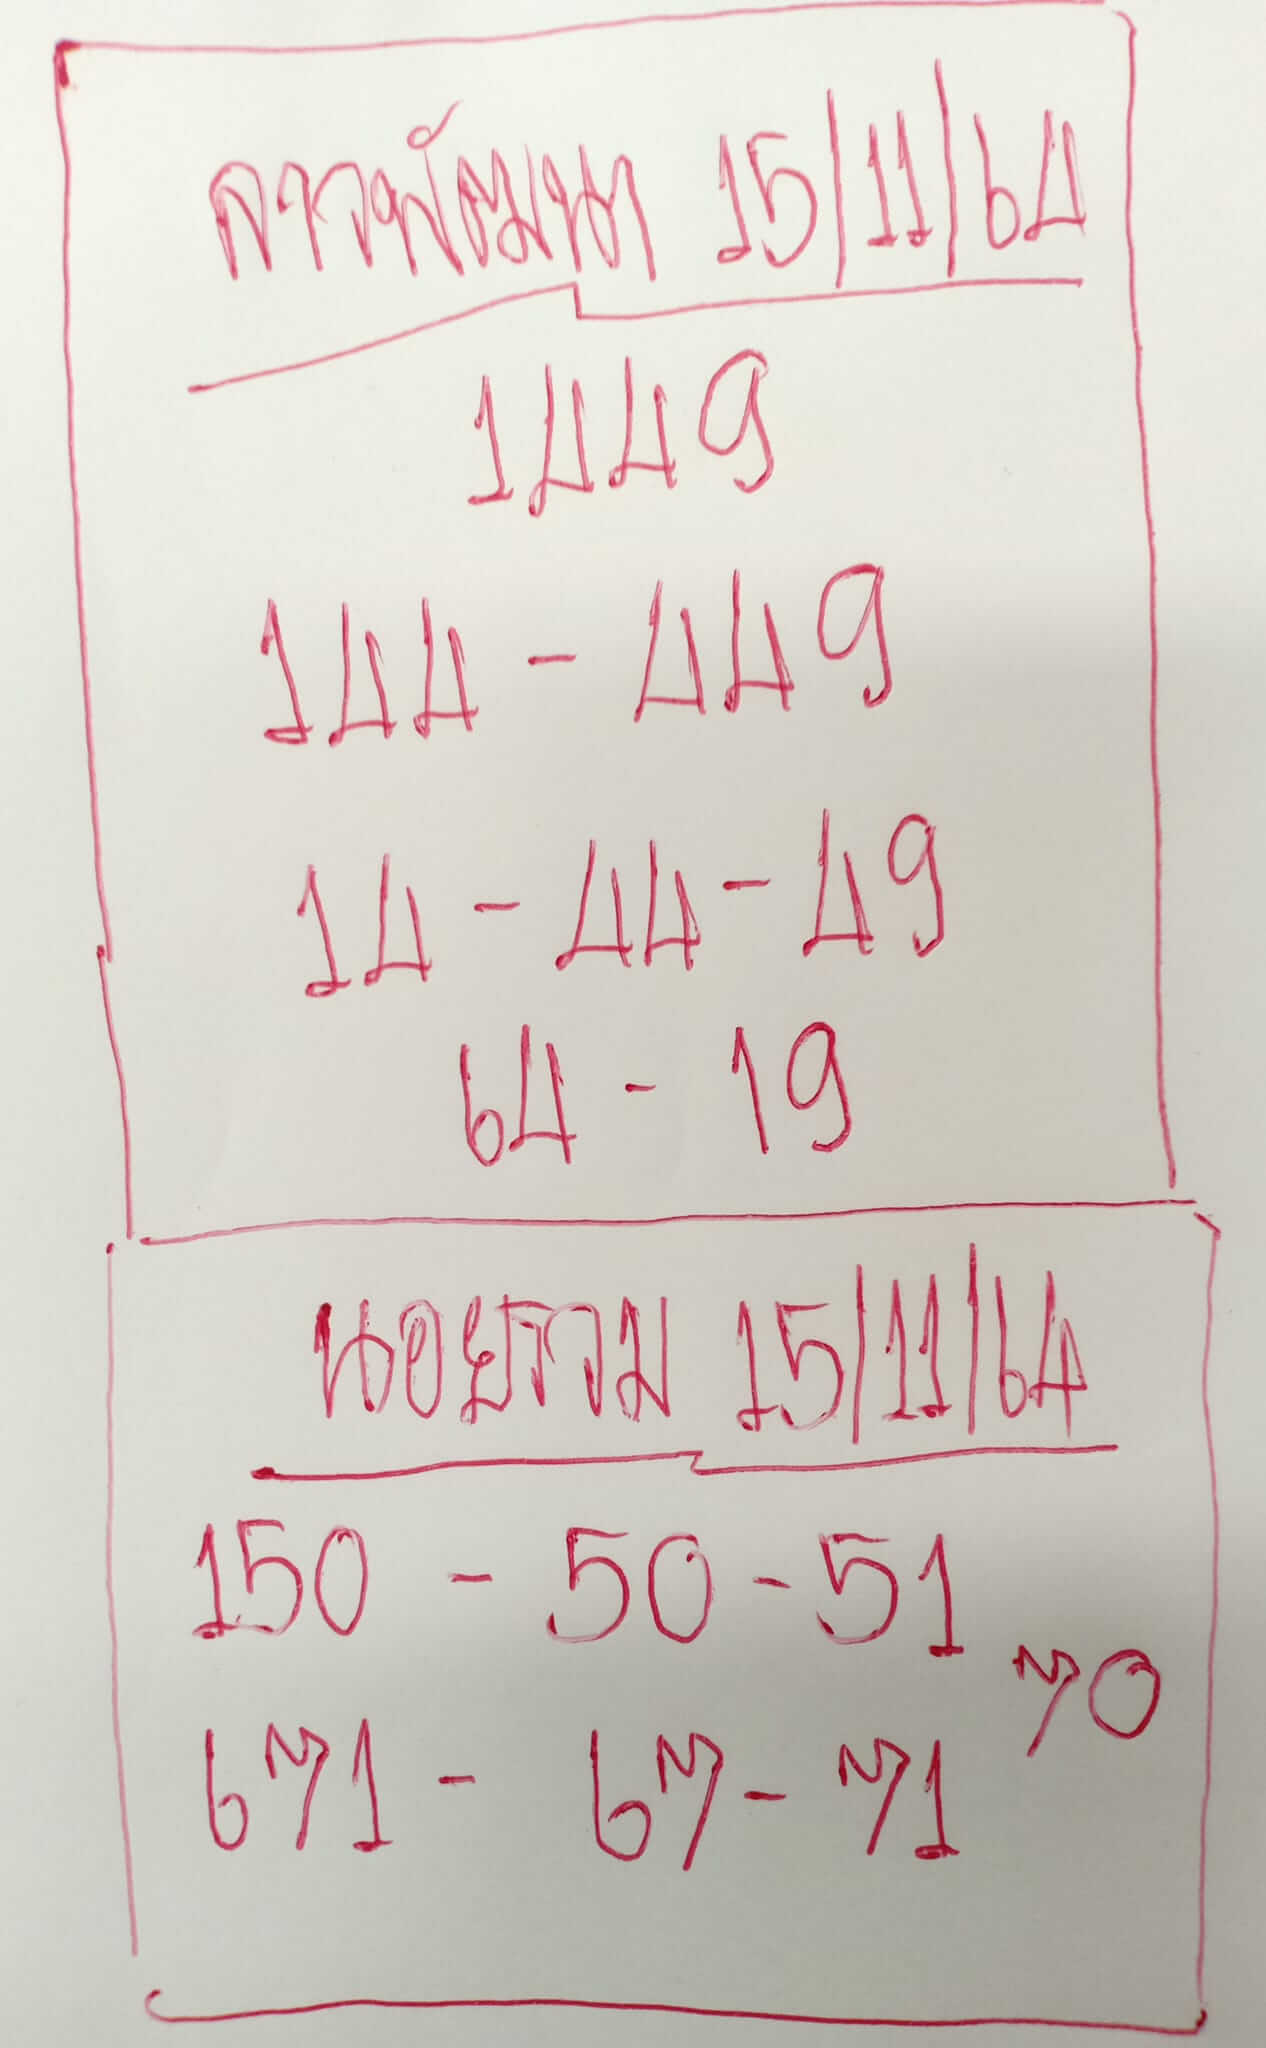 ลาวพัฒนา 15/11/64
1449
144 - 449
14 - 44 - 49
64 - 19
นอยรวม 15/11/64
150 - 50 - 51
70
671 - 67 - 71